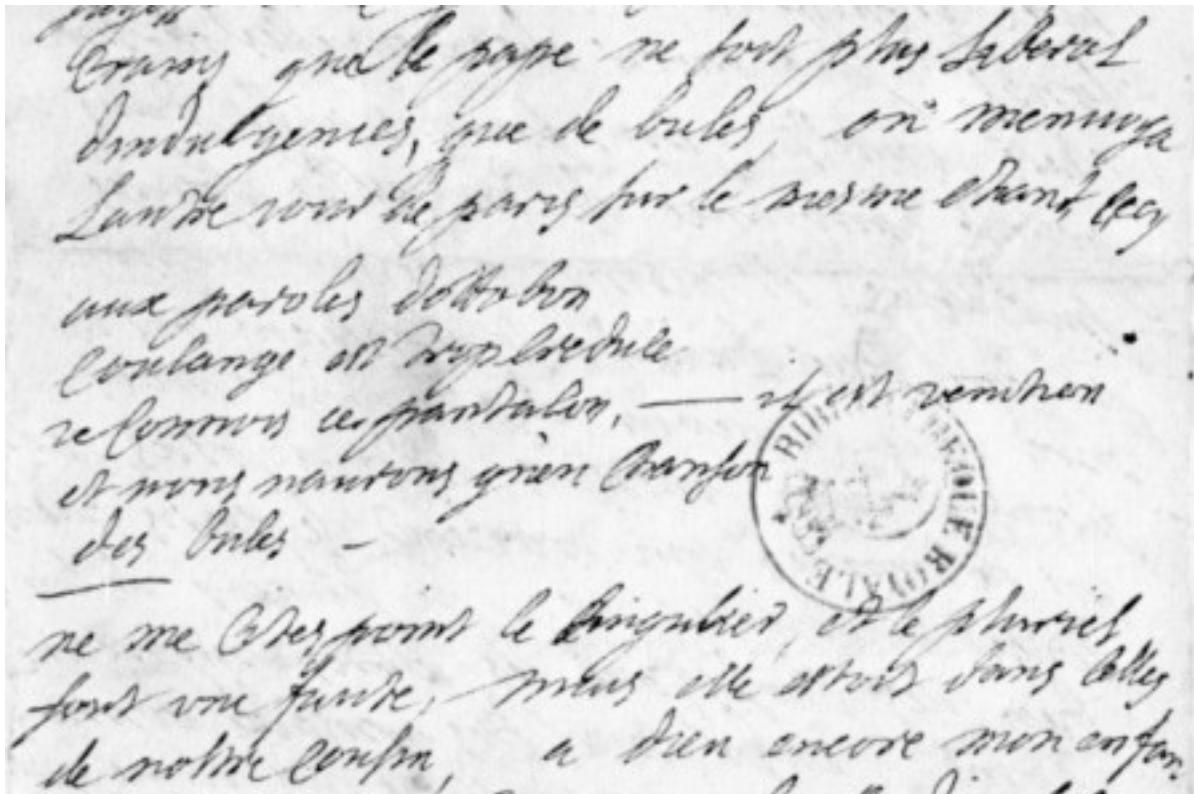 Crains que le pape ne soit plus liberal
dindulgences, que de bules, on menuoya
Lautre iour de paris sur le mesme chant, Cecy
aux paroles dottobon
Coulange est trop Credule
ie Connois ce pantalon, — il est venitien
et nous naurons qu'en Chanson
des bules —
ne me Cites point le singulier, et le pluriel
font vne faute, mais elle estoit dans Celles
de nostre Cousin, a dieu encore mon enfan
BIBLIOTHEQUE ROYALE